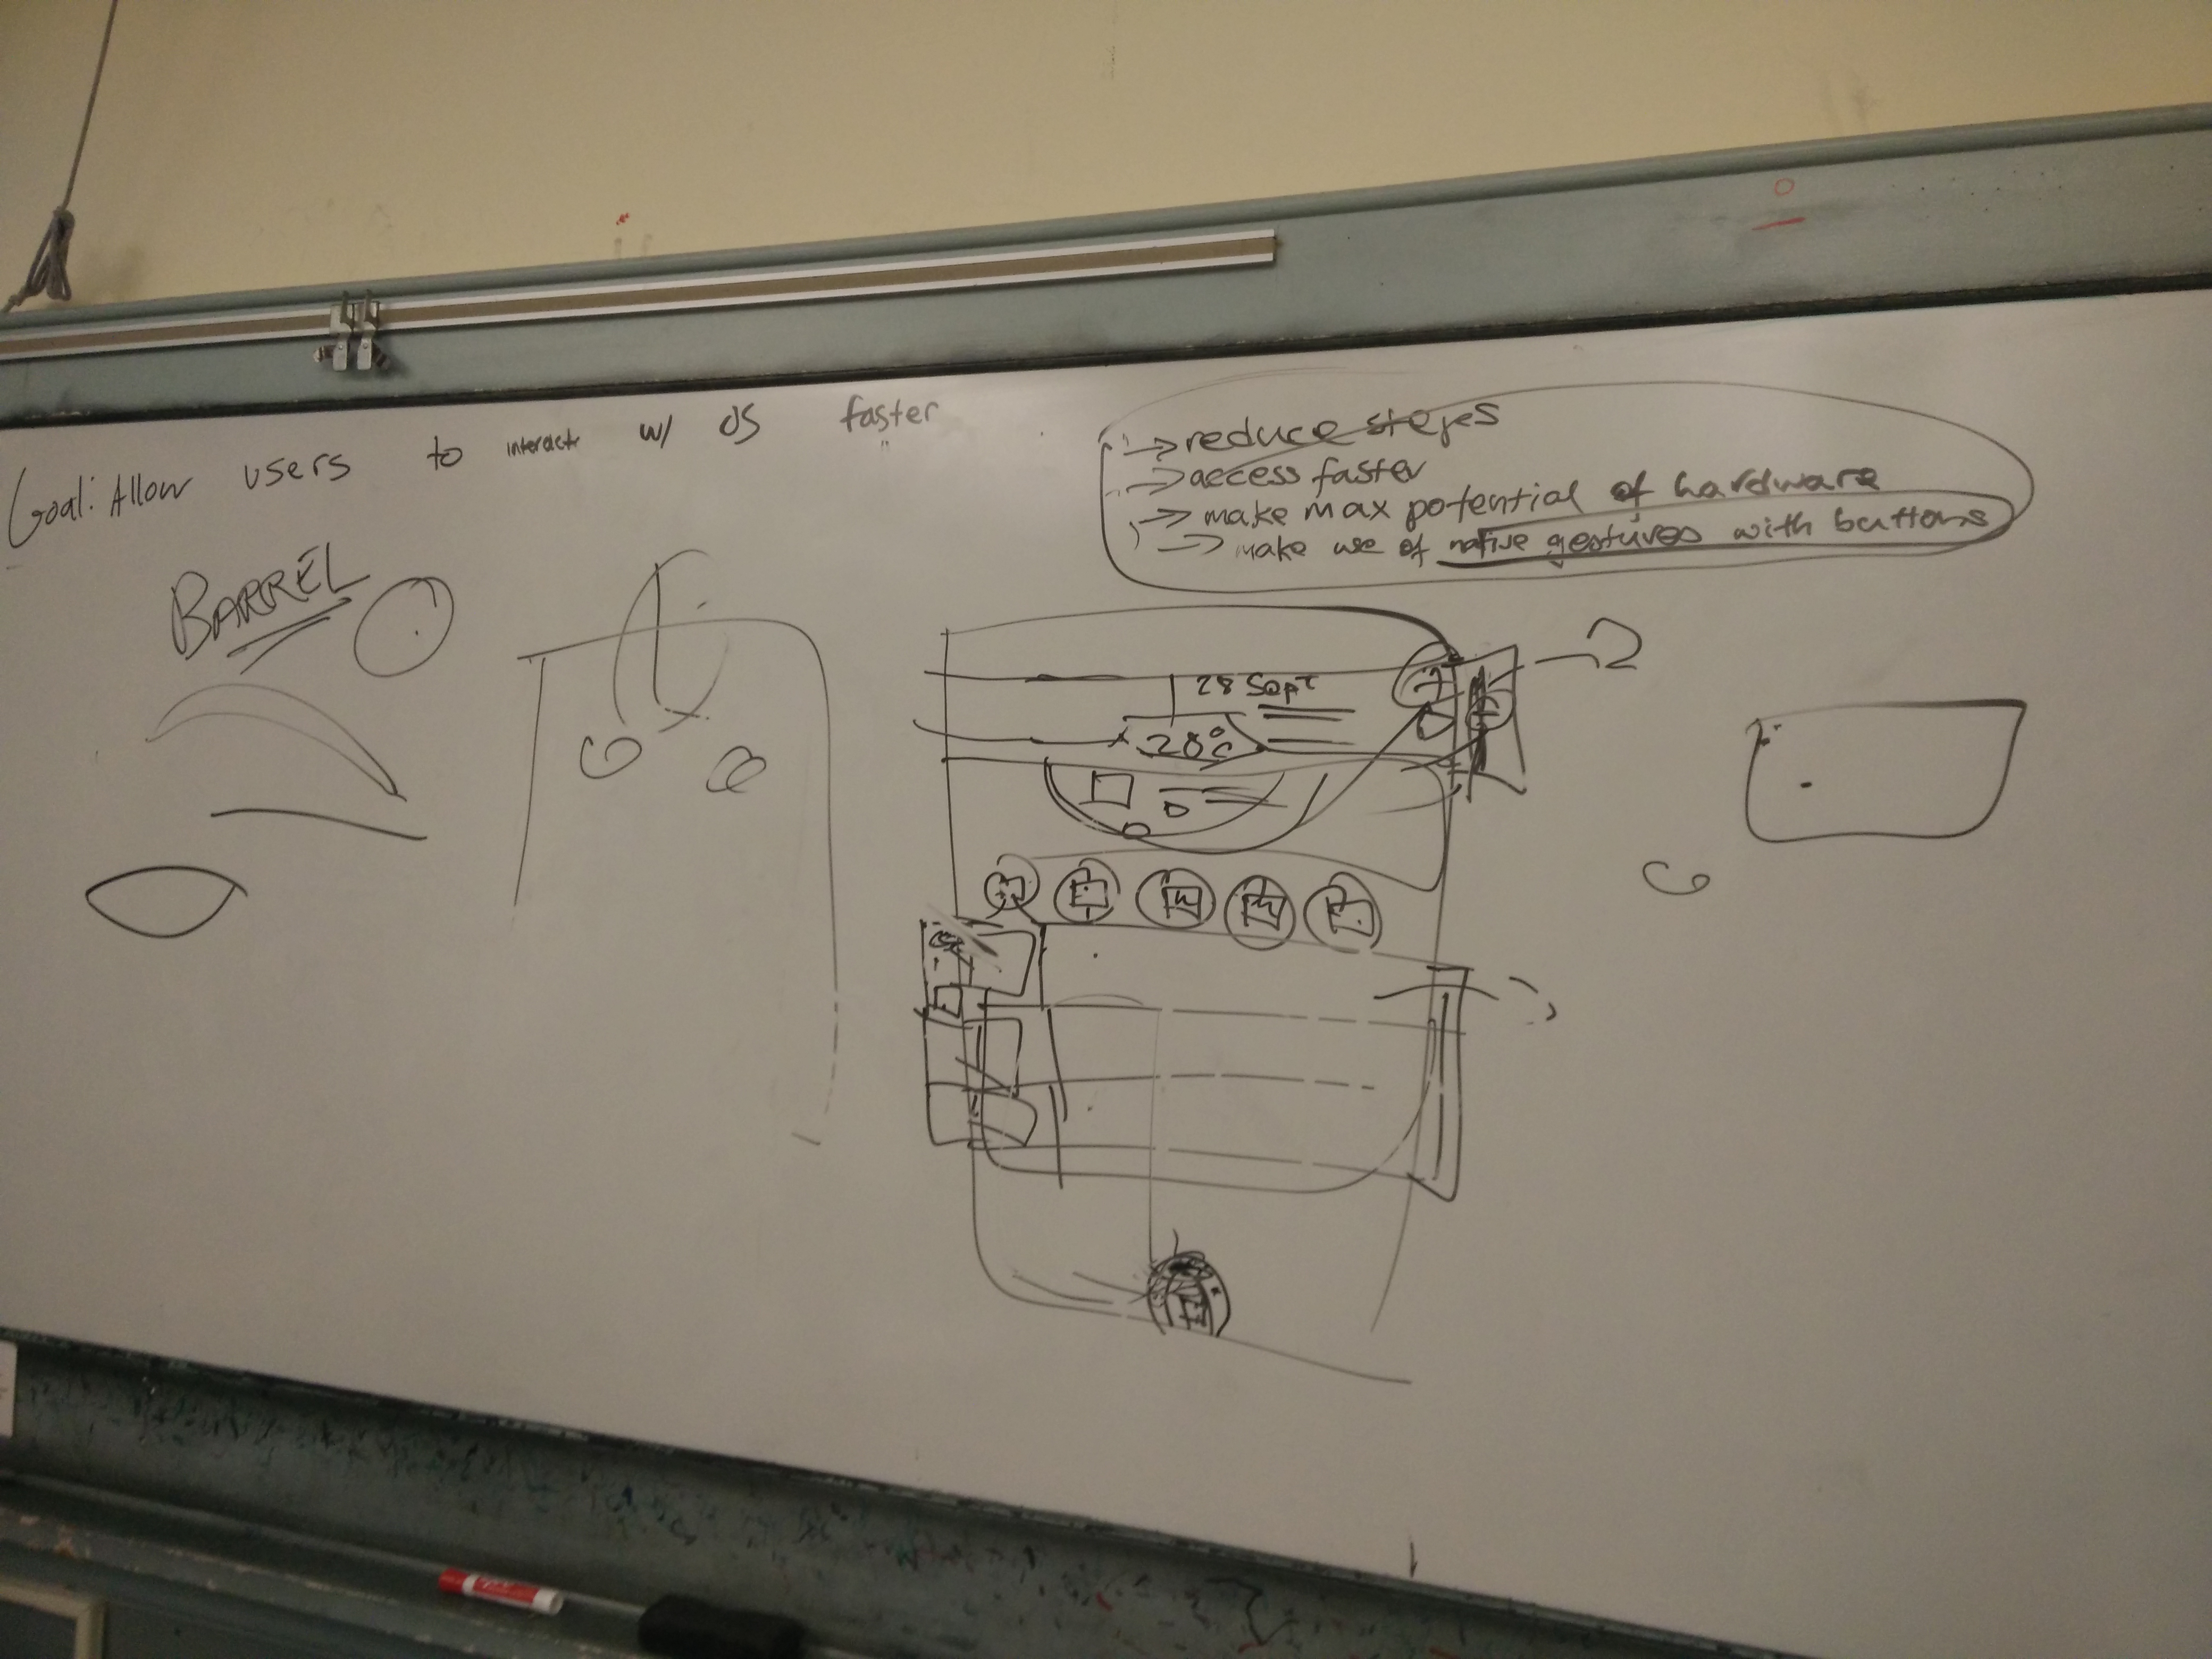 Goal: Allow users to interact w/ OS faster
→ reduce steps
→ access faster
→ make max potential of hardware
→ make use of native gestures with buttons
BARREL
28 Sept
28°c